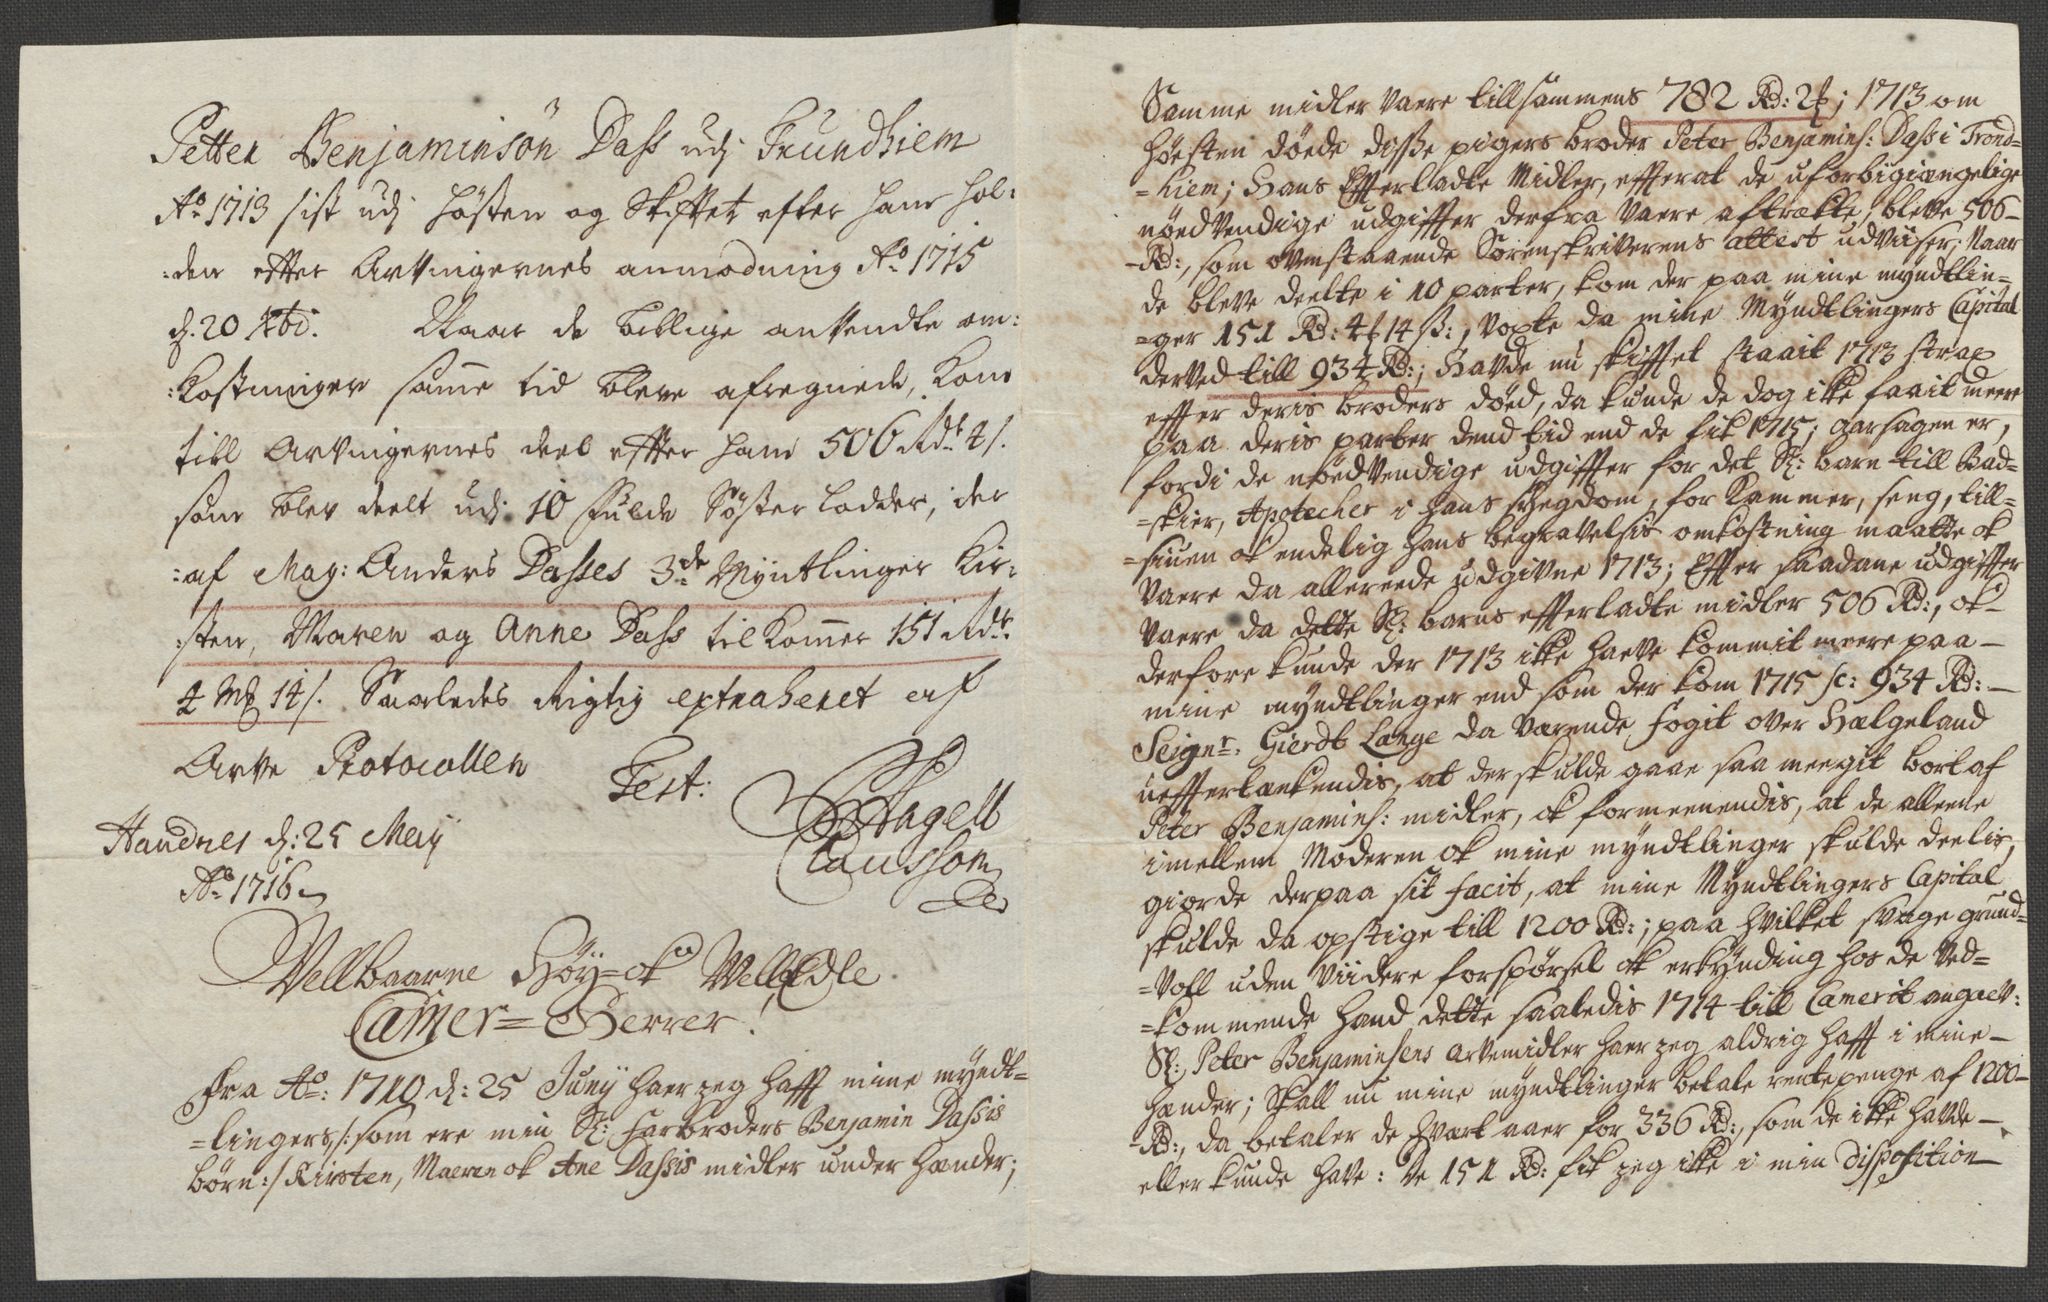 Petter Benjaminsön Dass udj Trundhiem
Ao 1713 sist udj Høsten og Skifftet efter ham hol:
:den effter Arvingernes anmodning Ao 1715
d. 20 Xbr. Naar de billige anvendte om:
:Kostninger samme tid bleve afregnede, Kom
till Arvingernes deel effter ham 506 Rdr 4 s.
som blev deelt udj 10 fulde Søster lodder, der
:af May: Anders Dasses 3de Myntlinger Kir:
:sten, Maren og Anne Dass tilkommer 151 Rdr.
4 Mk 14 s. Saaledes Rigtig extraheret af
Arve Protocollen
Test:
Angell
Clausson
Handnes d: 25 Maij
Ao 1716
Vellbaarne Höÿ= ok VellEdle
Camer= Herrer!
Fra Ao: 1710 d: 25 Junij haer jeg hafft mine myndt=
=lingers /: som ere min Sl: farbroders Benjamin Dassis
börn :/ Kirsten, Maeren ok Ane Dassis midler under hænder;
Samme midler vaere tillsammens 782 Rd: 2 ; 1713 om
höesten döede disse pigers broder Peter Benjamins: Dass i Trond=
=hiem; Hans Efferladte Midler, efferat de uforbigiængelige
nöedvendige udgiffter derfra vaere aftrækte, bleve 506
Rd:, som ovenstaaende Sorenskriverens attest udviiser; Naar
de bleve deelte i 10 parter, kom der paa mine myndtlin=
=ger 151 Rd: 4 14 s:, voxte da mine Myndtlingers Capital
derved till 934 Rd:; Havde nu skifftet staait 1713 strax
effter deris broders döed, da kunde de dog ikke faait meere
paa deris parter dend tid end de fik 1715; Aarsagen er,
fordi de nöedvendige udgiffter for det Sl: barn till Bad=
=skier, Apotecher i hans svegdom, for Kammer, seng, till=
=siuen ok endelig hans begravelsis omkostning maatte ok
vaere da allereede udgivne 1713; Effter saadane udgiffter
vaere da dette Sl: barns efferladte midler 506 Rd:, ok
derfore kunde der 1713 ikke haeve kommit meere paa
mine myndtlinger end som der kom 1715 sc: 934 Rd:
Seignr: Gierdt Lange da værende fogit over Hælgeland
ueffertænkendis, at der skulde gaae saa meegit bort af
Peter Benjamins: midler, ok formeenendis, at de alleene
imellem Moderen ok mine myndtlinger skulde deelis,
giorde derpaa sit facit, at mine Myndtlingers Capital
skulde da opstige till 1200 Rd:; paa hvilket svage grund=
=voll uden viidere forspörsel ok erkynding hos de ved=
=kommende hand dette saaledis 1714 till Camerit angaev:
Sl: Peter Benjaminsens arvemidler haer jeg aldrig hafft i mine
hænder; Skall nu mine myndtlinger betale rentepenge af 1200
Rd:, da betaler de hvært aaer for 336 Rd:, som de ikke havde
eller kunde have: De 151 Rd: fik jeg ikke i min disposition